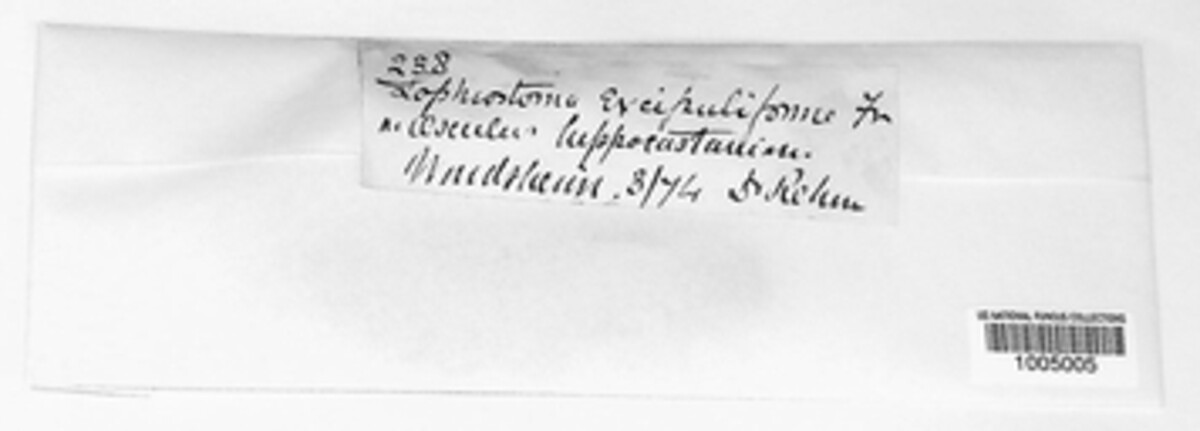 238
Lophiostoma excipuliforme Fr
n. Aesculus hippocastanum.
Windsheim. 3/74 Dr Rehm
US NATIONAL FUNGUS COLLECTIONS
1005005